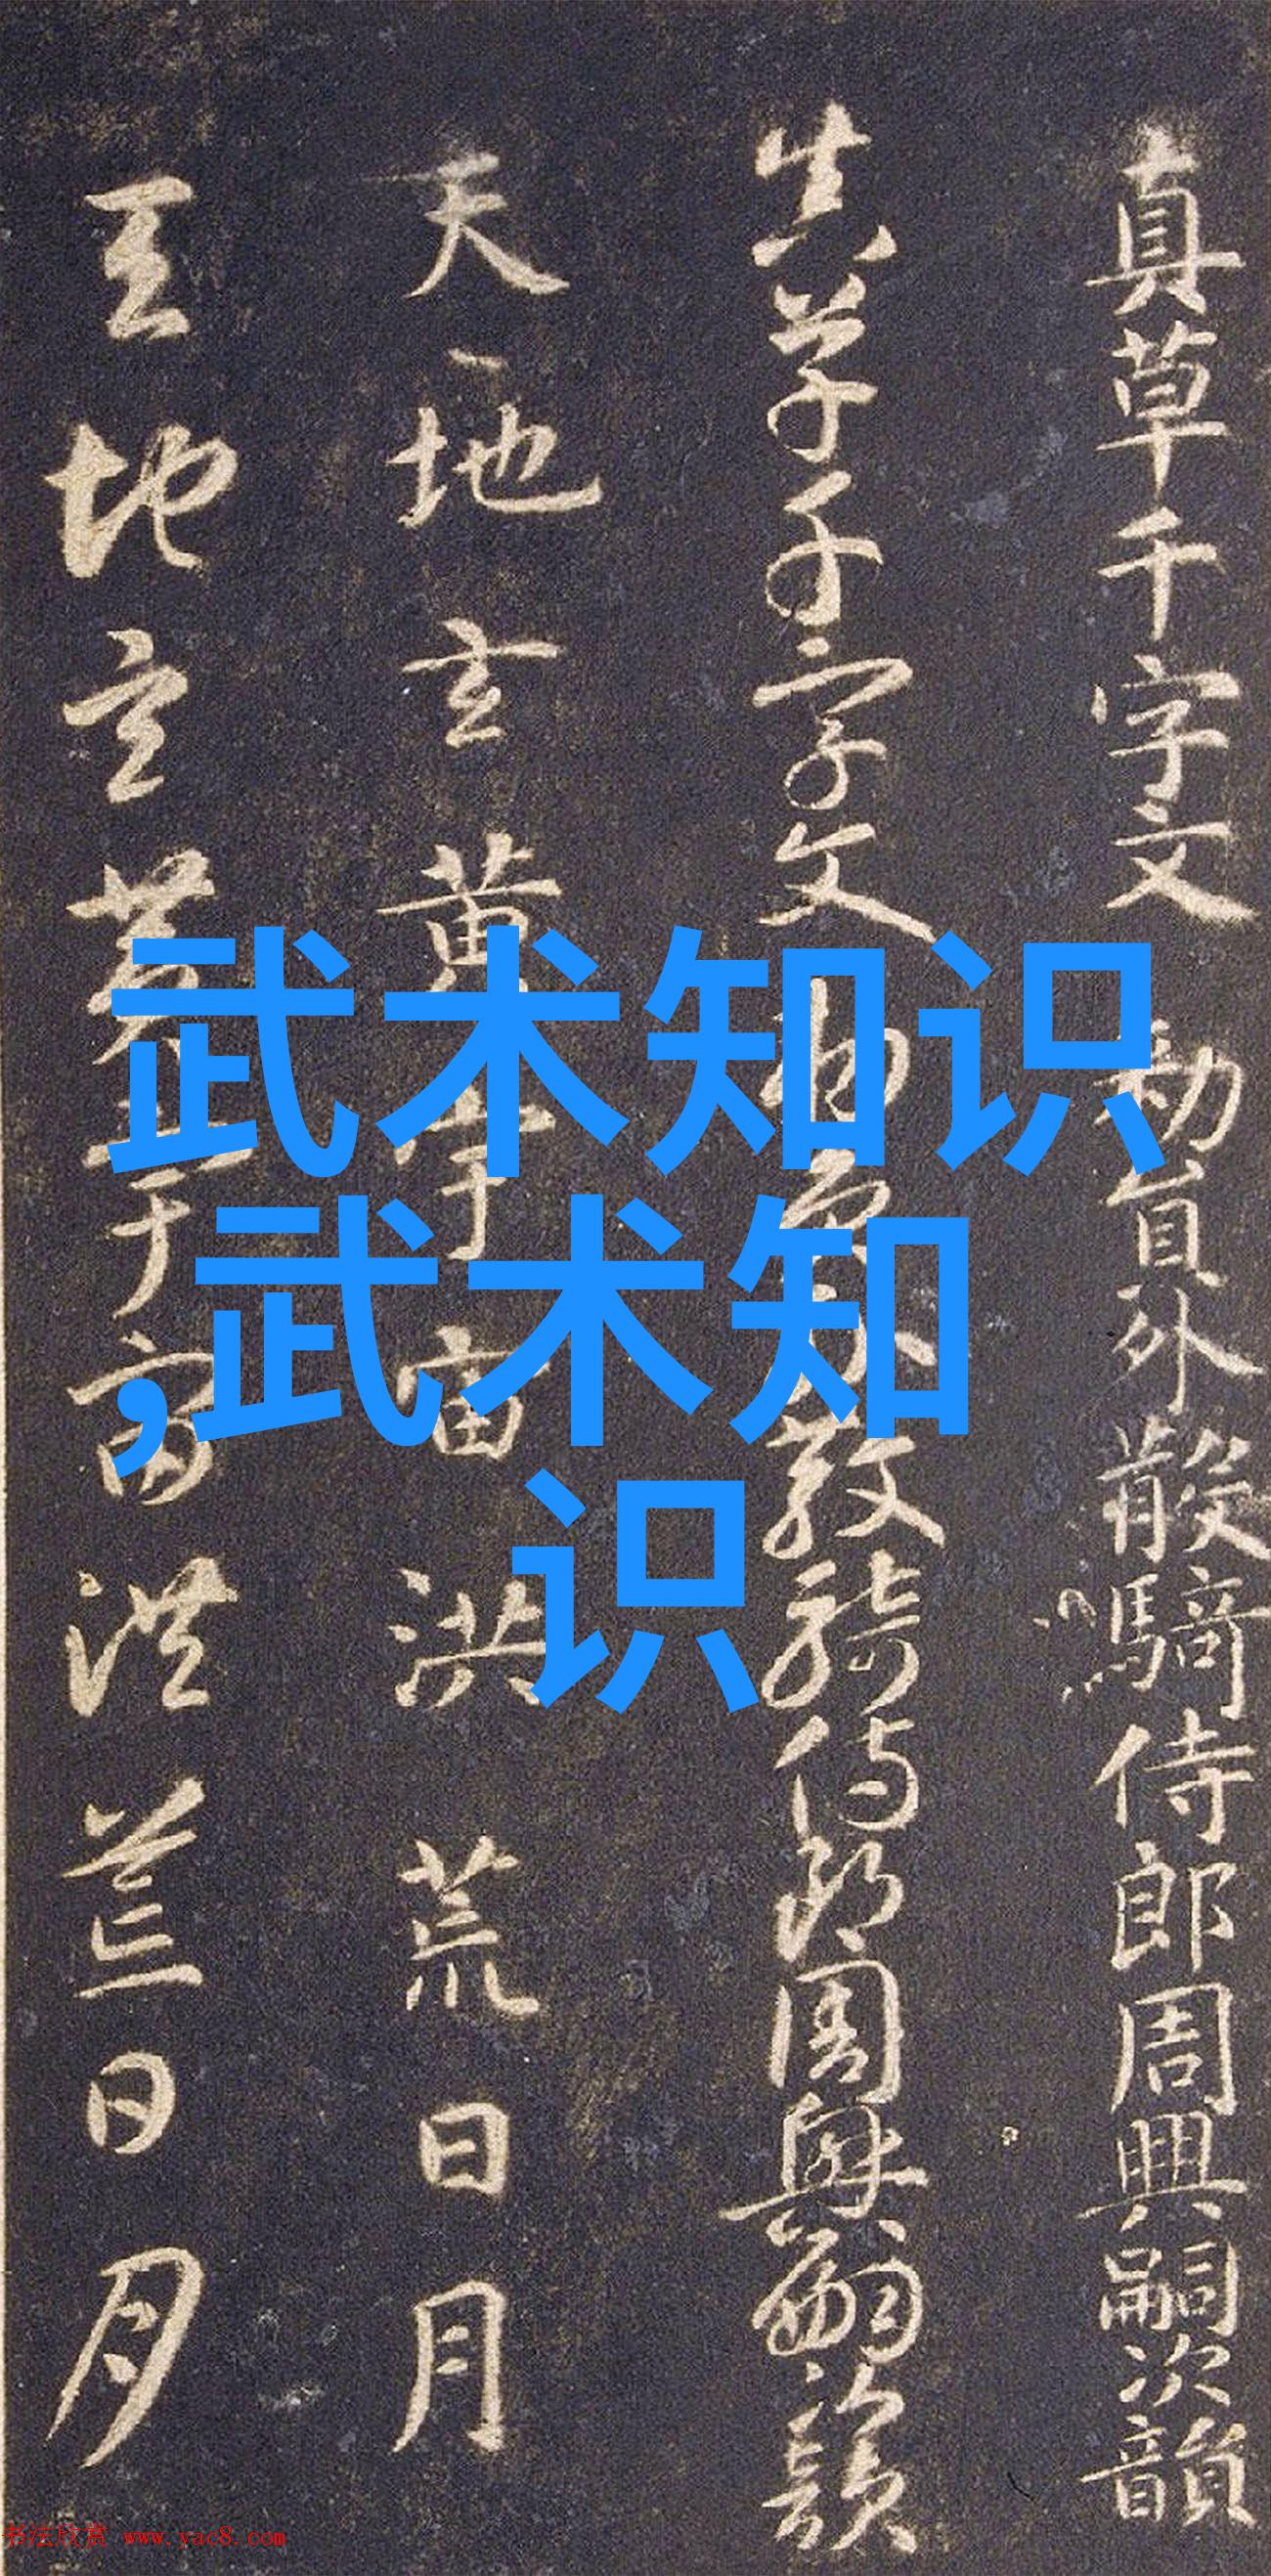 真草千字文 勅員外散騎侍郎周興嗣次韻
真草千字文 勅員外散騎侍郎周興嗣次韻
天地玄黄宇宙洪荒日月
天地玄黄宇宙洪荒日月
武术知识
,武术知
识
书法欣赏 www.yac8.com